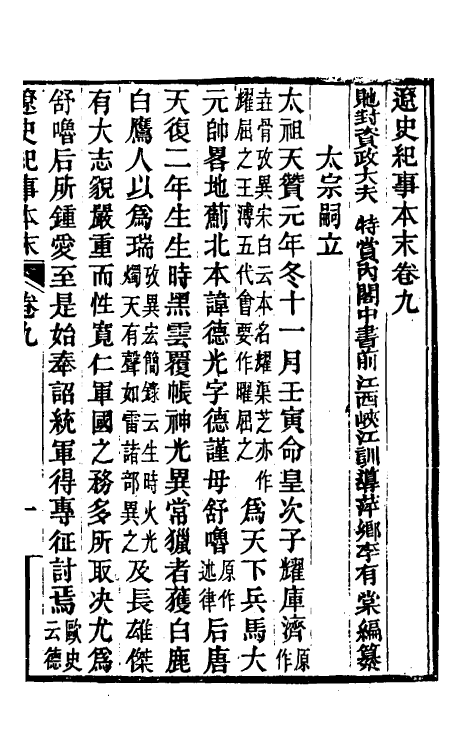 遼史紀事本末卷九
貤封資政大夫特賞內閣中書前江西峽江訓導萍鄉李有棠編纂
太宗嗣立
太祖天贊元年冬十一月壬寅命皇次子耀庫濟原作
垚骨攷異宋白云本名耀渠芝亦作耀屈之王溥五代會要作曜屈之爲天下兵馬大
元帥畧地薊北本諱德光字德謹母舒嚕原作述律后唐
天復二年生生時黑雲覆帳神光異常獵者獲白鹿
白鷹人以爲瑞攷異宏簡錄云生時火光燭天有聲如雷諸部異之及長雄傑
有大志貌嚴重而性寬仁軍國之務多所取決尤爲
舒嚕后所鍾愛至是始奉詔統軍得專征討焉歐史云德
遼史紀事本末 卷九 一